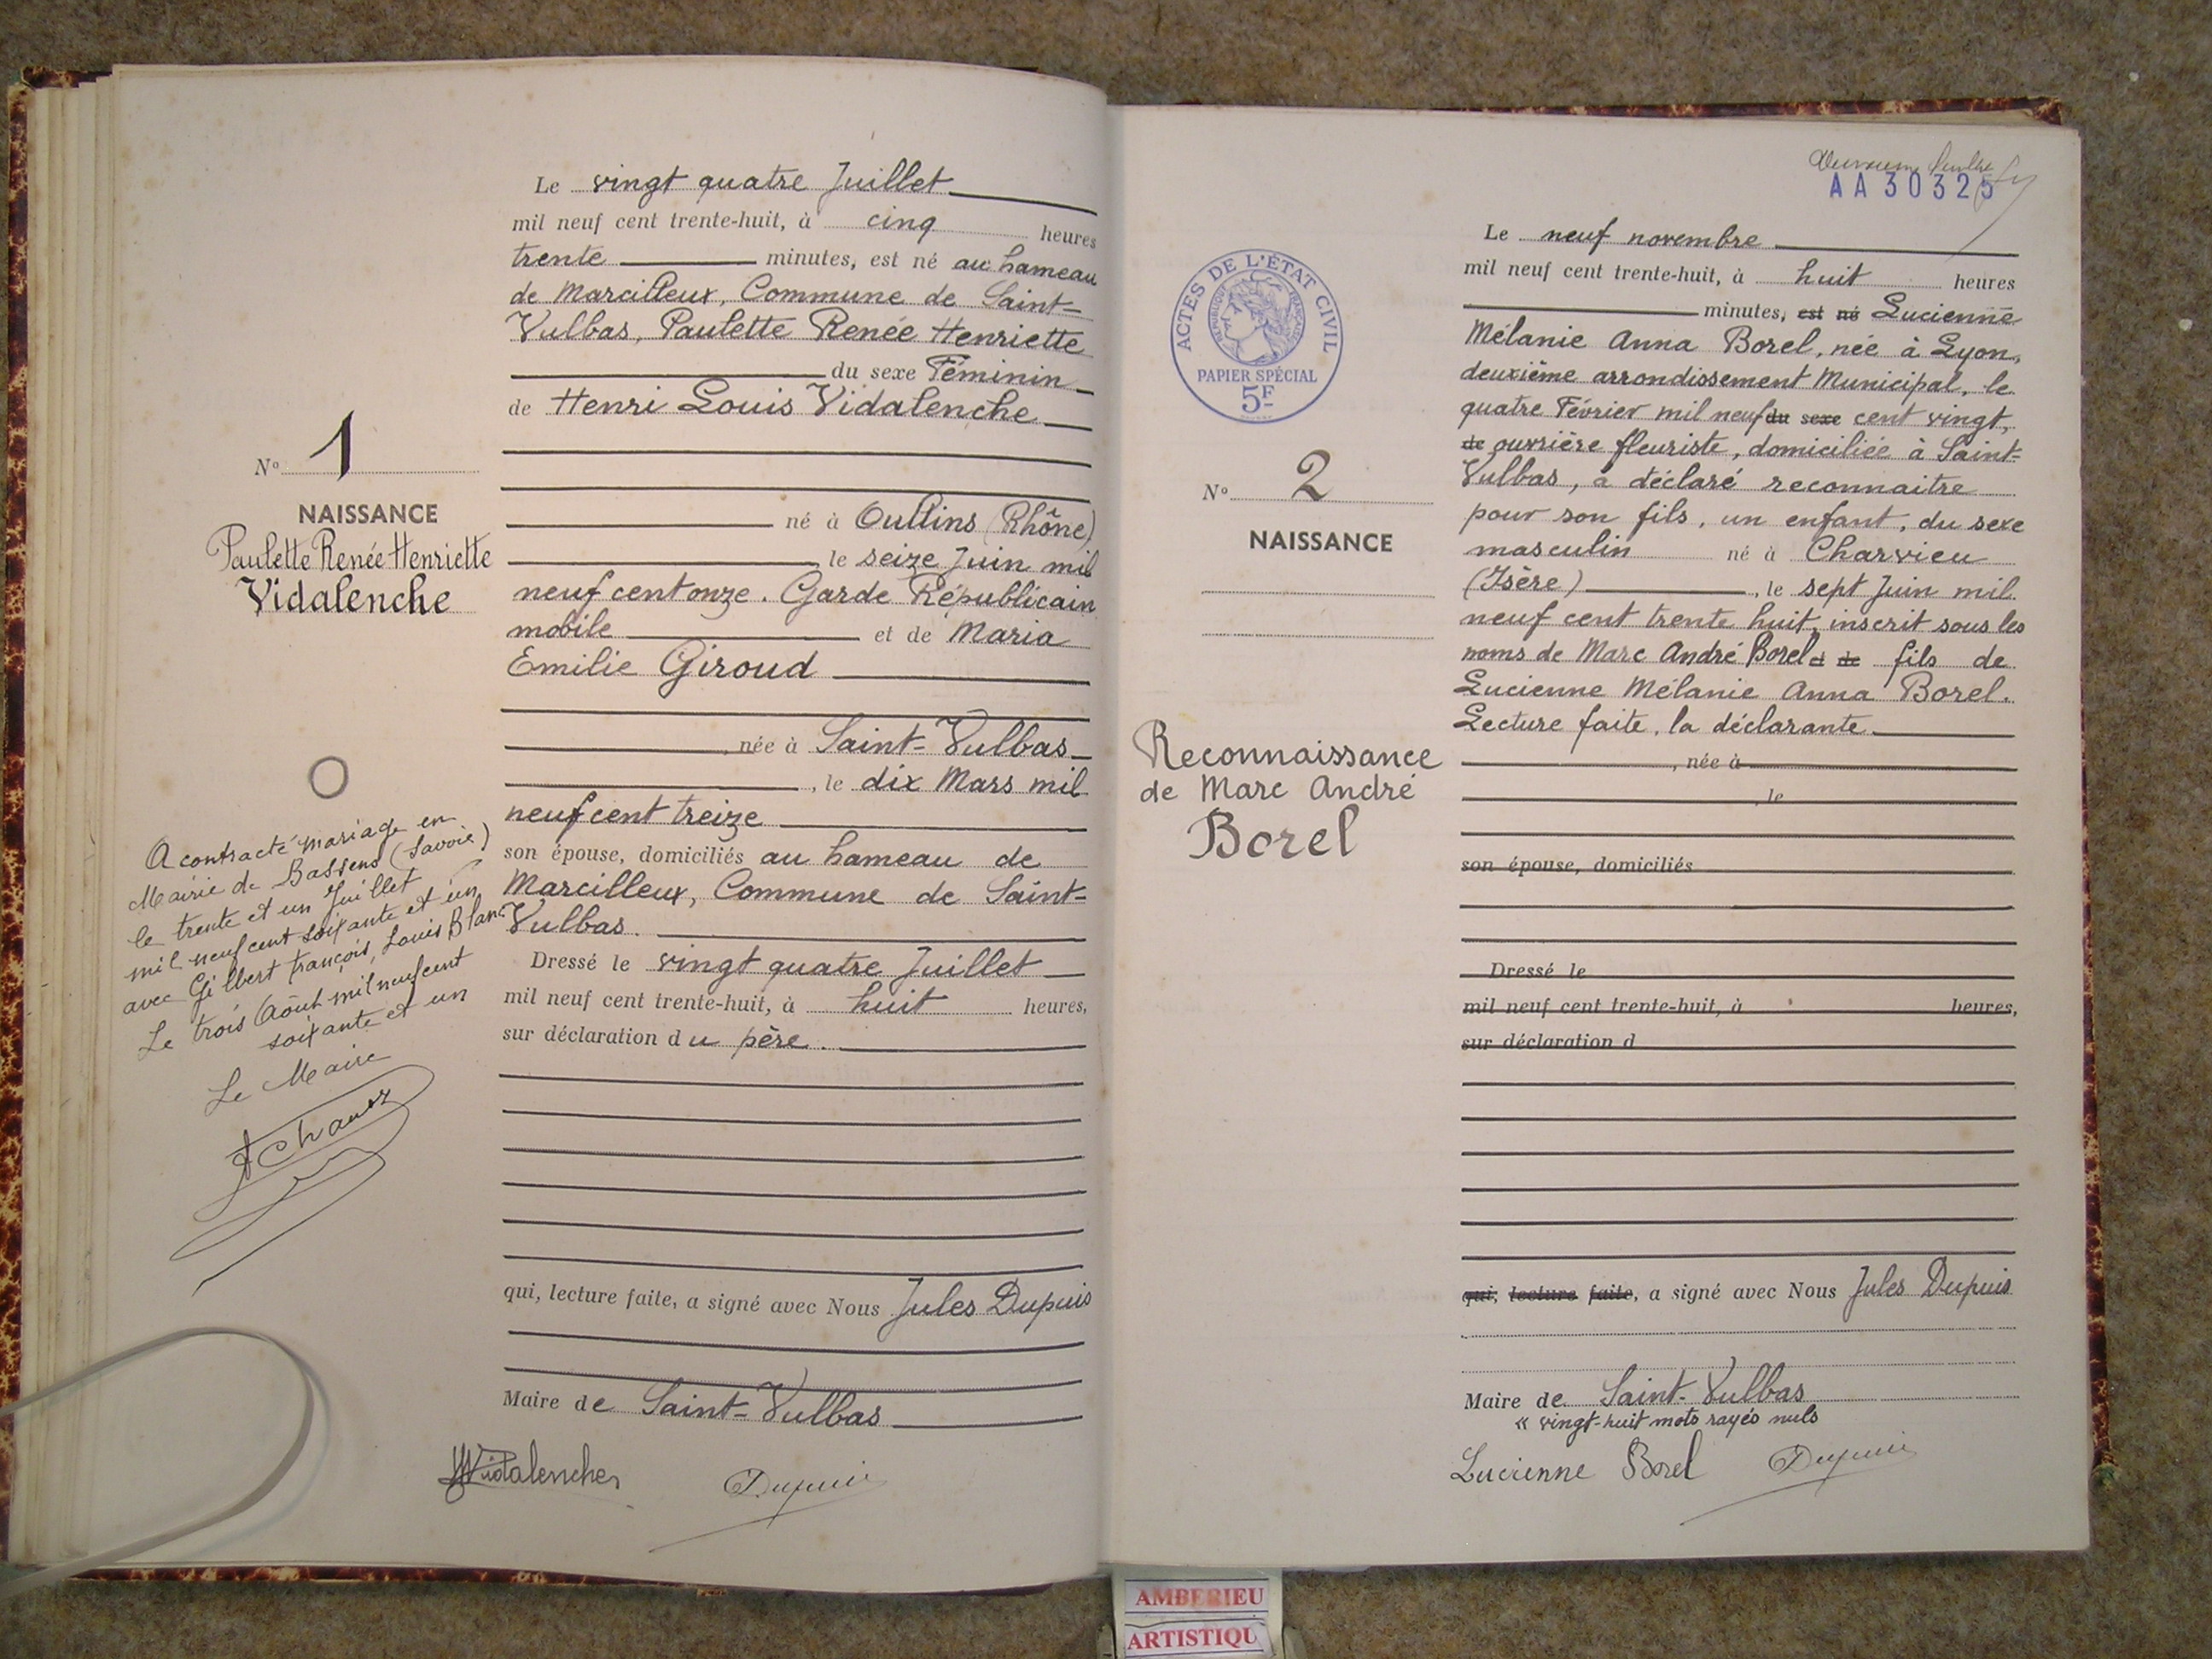 Le vingt quatre Juillet
mil neuf cent trente-huit, à cinq heures
trente minutes, est né au hameau
de Marcilleux, Commune de Saint-
Vulbas, Paulette Renée Henriette
du sexe Féminin
de Henri Louis Vidalenche
né à Oullins (Rhône)
, le seize Juin mil
neuf cent onze. Garde Républicain
mobile et de Maria
Emilie Giroud
, née à Saint-Vulbas
, le dix Mars mil
neuf cent treize
son épouse, domiciliés au hameau de
Marcilleux, Commune de Saint-
Vulbas.
Dressé le vingt quatre Juillet
mil neuf cent trente-huit, à huit heures,
sur déclaration du père.
qui, lecture faite, a signé avec Nous Jules Dupuis
Maire de Saint-Vulbas
Vidalenche
Dupuis
No 1
NAISSANCE
Paulette Renée Henriette
Vidalenche
A contracté mariage en
Mairie de Bassens (Savoie)
le trente et un Juillet
mil neuf cent soixante et un
avec Gilbert François, Louis Blanc
Le trois Août mil neuf cent
soixante et un
Le Maire
AA30325
ACTES DE L'ÉTAT CIVIL
RÉPUBLIQUE FRANÇAISE
PAPIER SPÉCIAL
5F
No 2
NAISSANCE
Reconnaissance
de Marc André
Borel
Le neuf novembre
mil neuf cent trente-huit, à huit heures
minutes, est né Lucienne
Mélanie Anna Borel, née à Lyon,
deuxième arrondissement Municipal, le
quatre Février mil neuf du sexe cent vingt,
de ouvrière fleuriste, domiciliée à Saint-
Vulbas, a déclaré reconnaitre
pour son fils, un enfant, du sexe
masculin né à Charvieu
(Isère) , le sept Juin mil
neuf cent trente huit, inscrit sous les
noms de Marc André Borel et de fils de
Lucienne Mélanie Anna Borel.
Lecture faite, la déclarante
, née à
, le
son épouse, domiciliés
Dressé le
mil neuf cent trente-huit, à heures,
sur déclaration d
qui, lecture faite, a signé avec Nous Jules Dupuis
Maire de Saint-Vulbas
« vingt-huit mots rayés nuls
Lucienne Borel Dupuis
AMBERIEU
ARTISTIQU